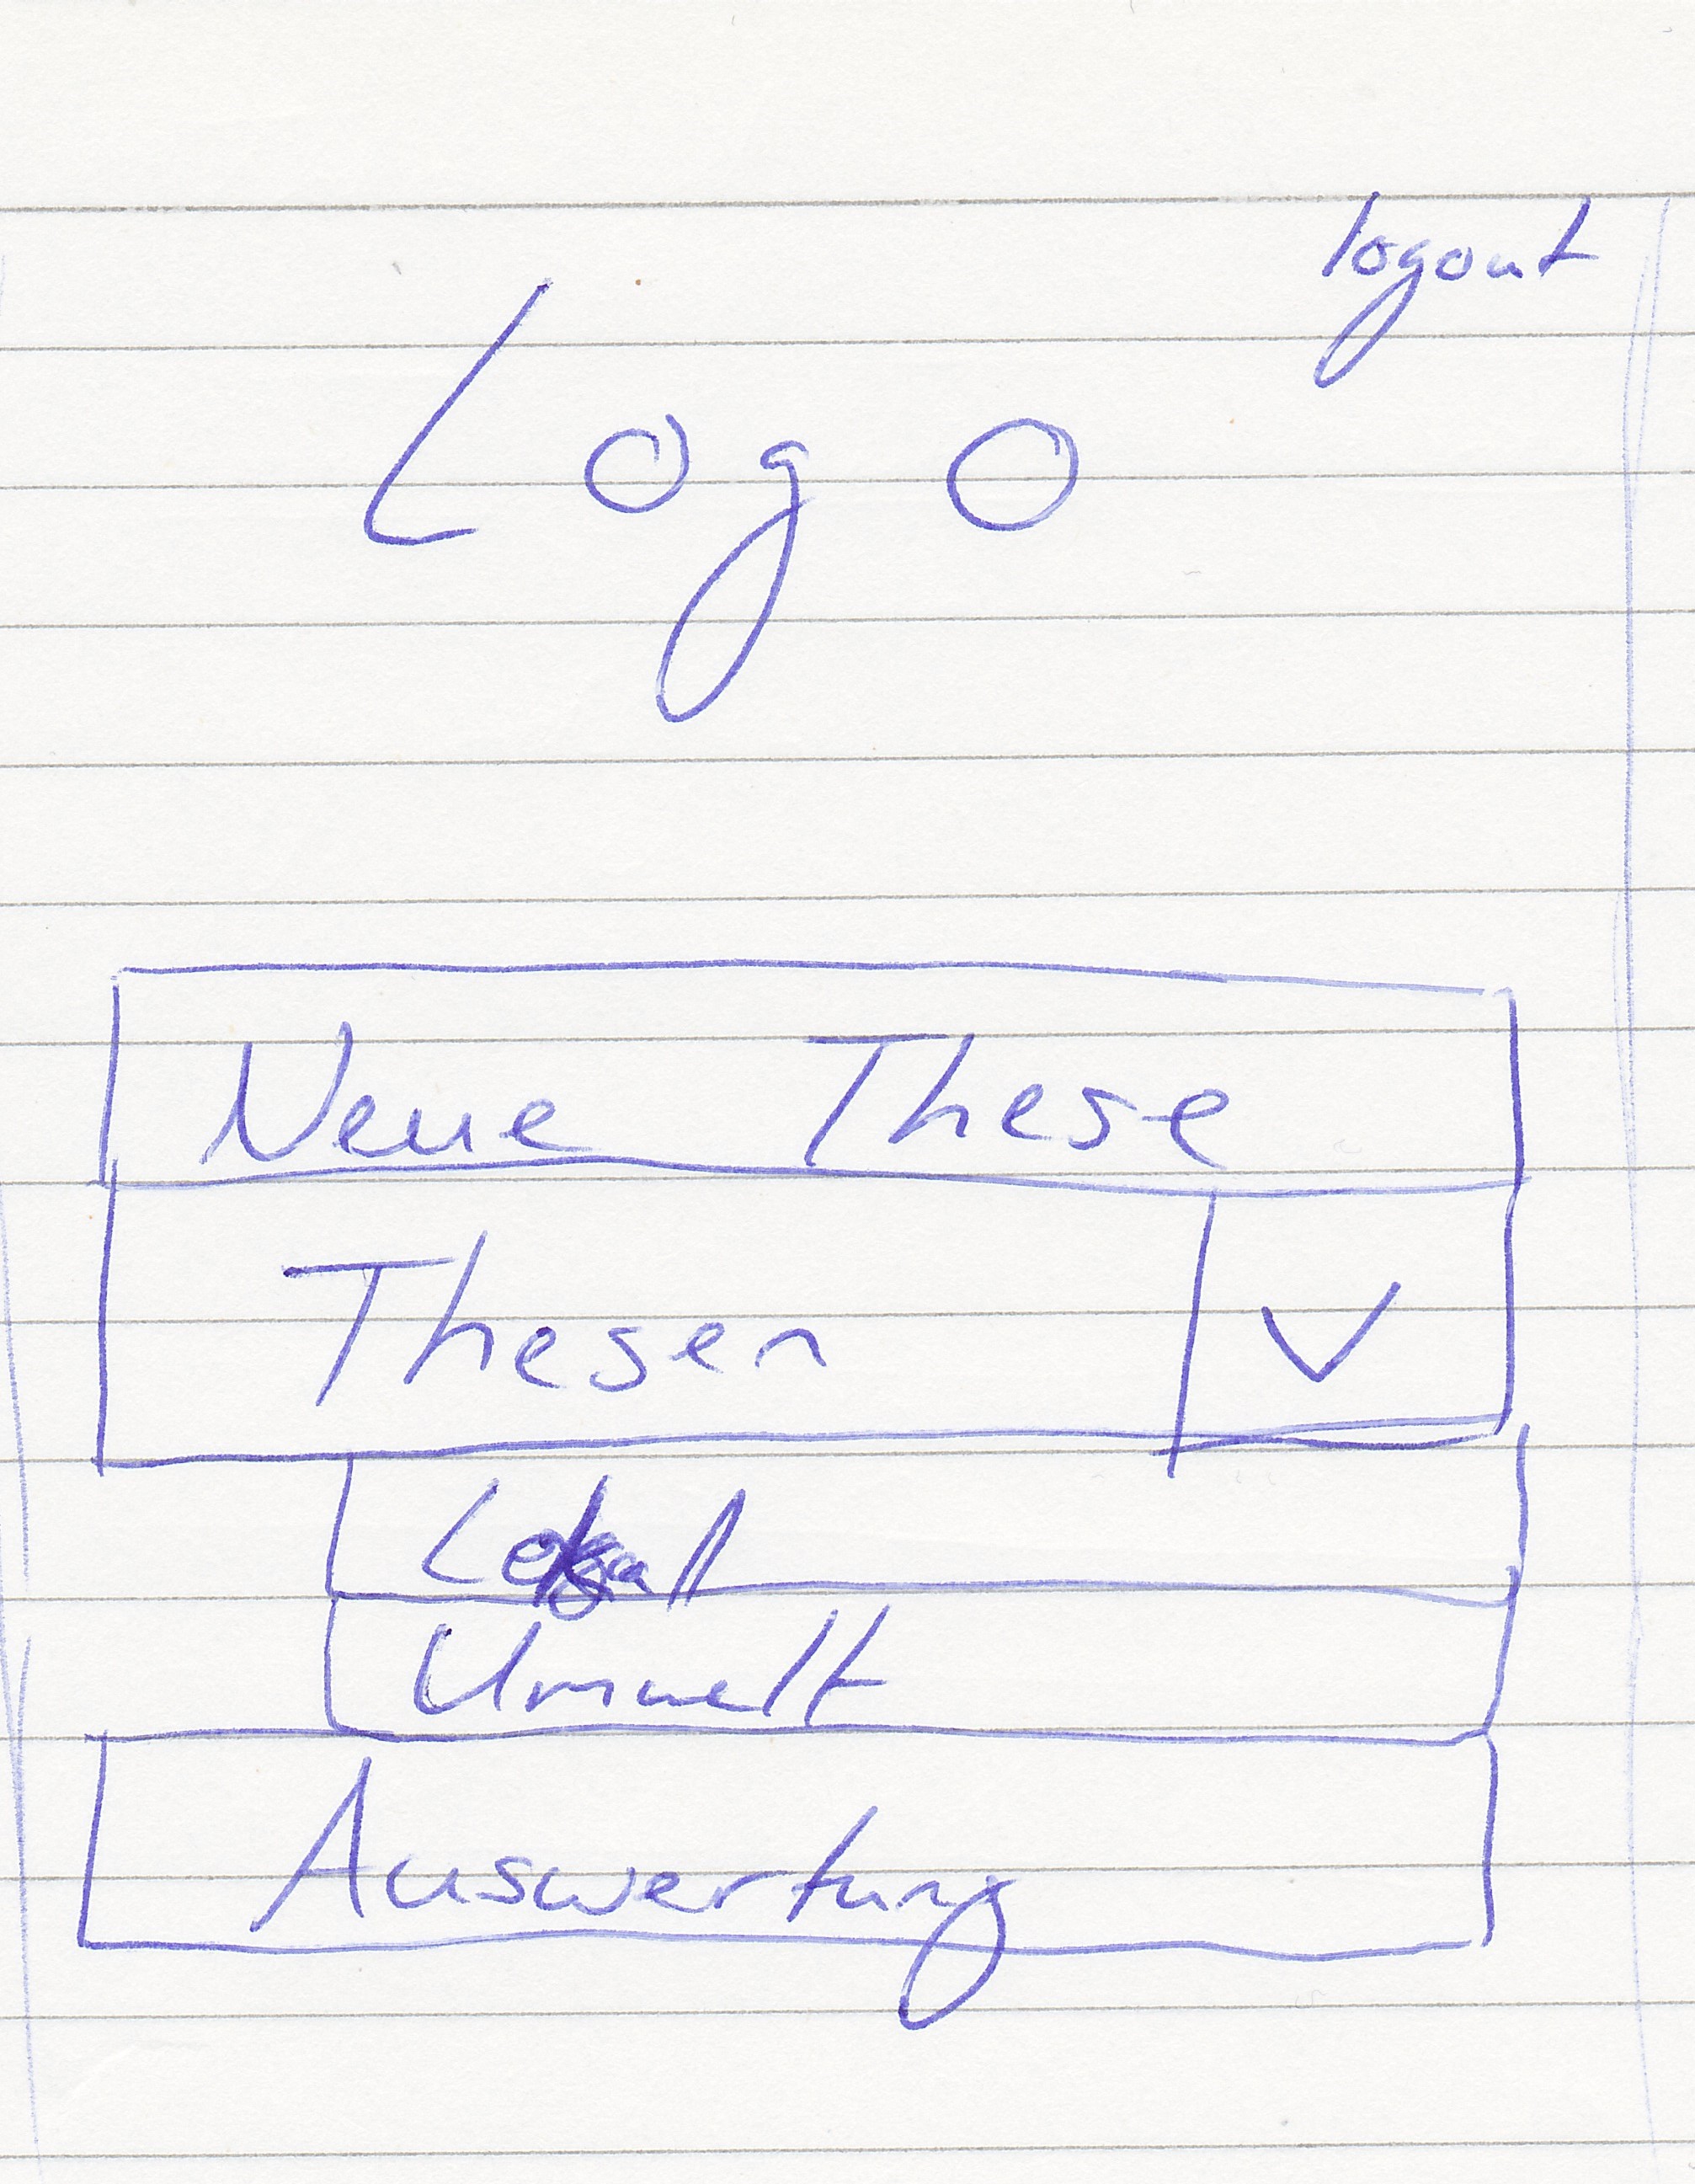 logout
Logo
Neue These
Thesen
Lokal
Umwelt
Auswertung